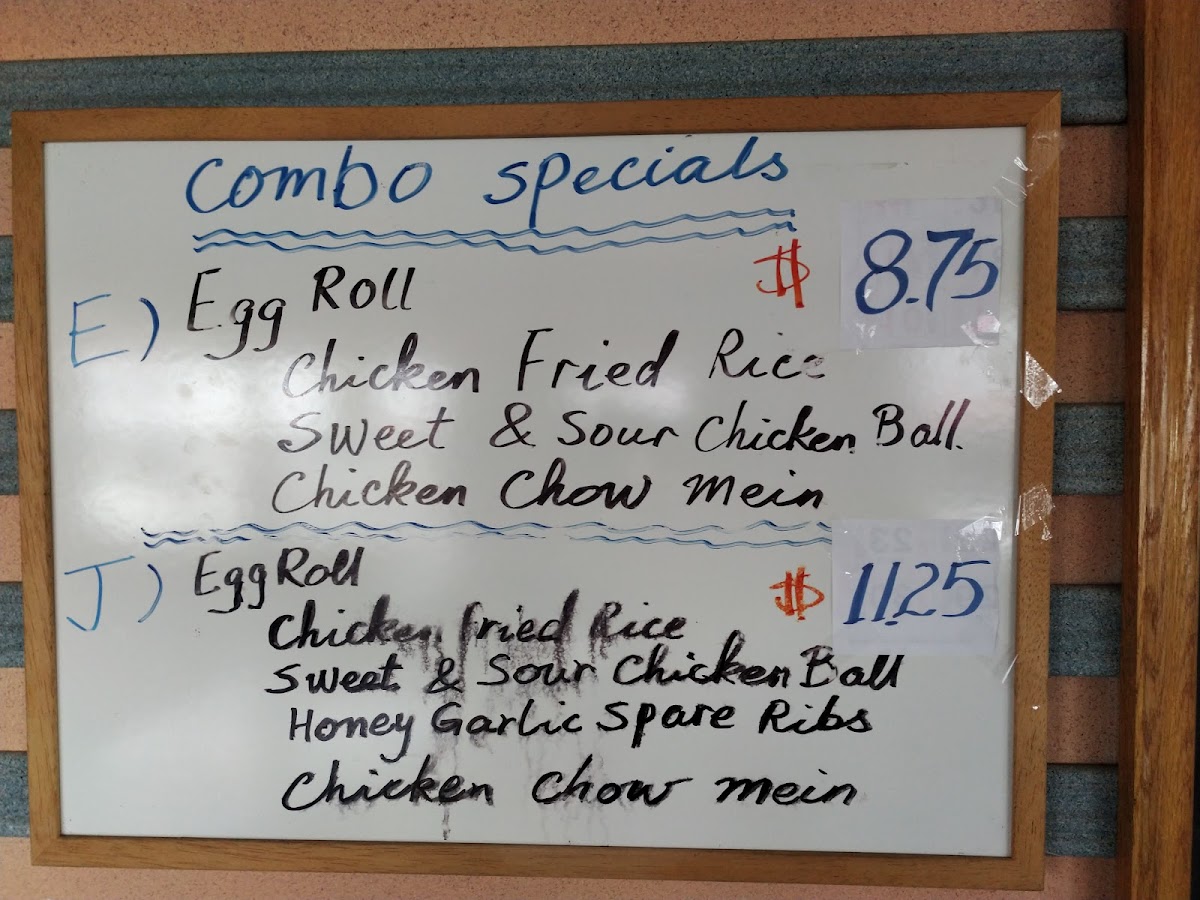 Combo specials
E) Egg Roll $ 8.75
Chicken Fried Rice
Sweet & Sour Chicken Ball.
Chicken Chow mein
J) Egg Roll $ 11.25
Chicken fried Rice
Sweet & Sour Chicken Ball
Honey Garlic Spare Ribs
Chicken Chow mein